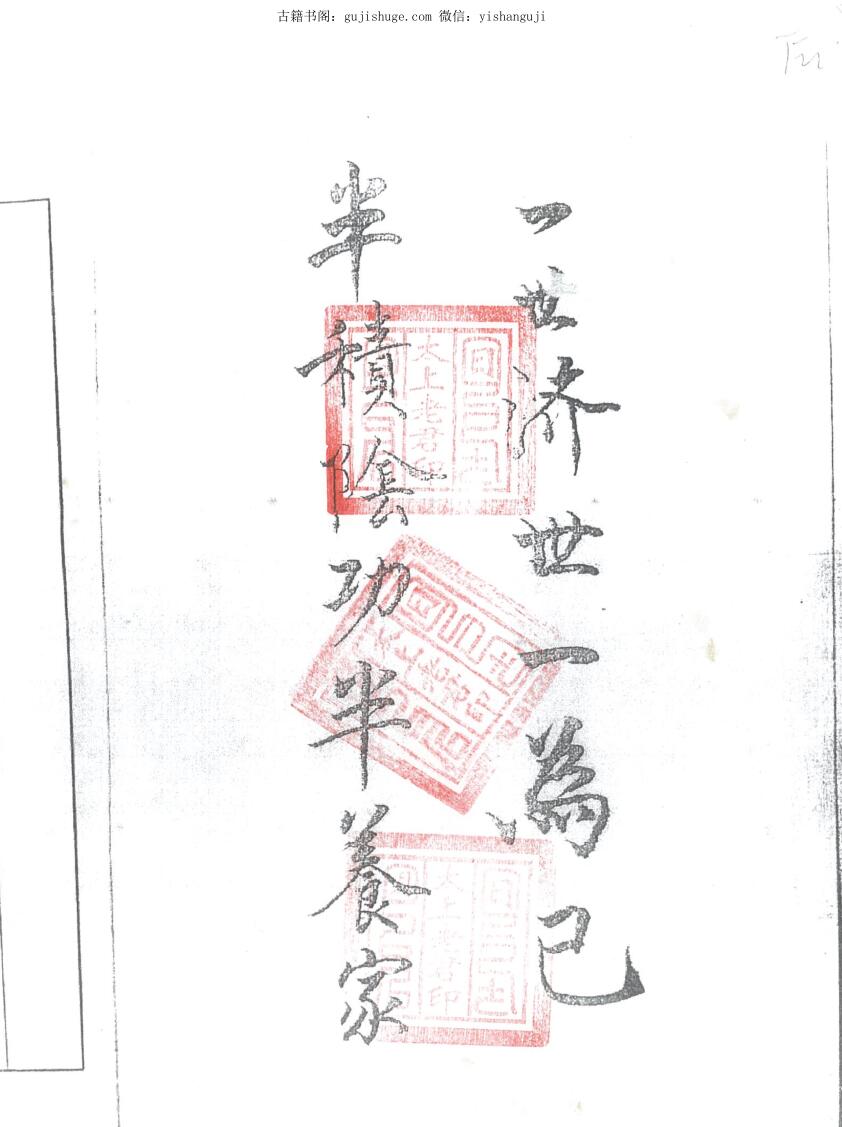 古籍书阁：gujishuge.com 微信：yishanguji
一世济世一為己
半積陰功半養家
太上老君印
太上老君印